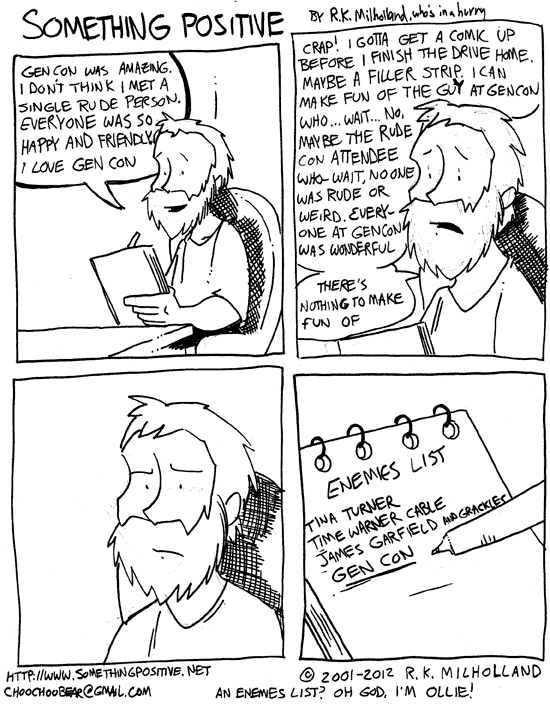 SOMETHING POSITIVE
BY R.K. Milholland, who's in a hurry
GENCON WAS AMAZING.
I DON'T THINK I MET A
SINGLE RUDE PERSON.
EVERYONE WAS SO
HAPPY AND FRIENDLY.
I LOVE GEN CON
CRAP! I GOTTA GET A COMIC UP
BEFORE I FINISH THE DRIVE HOME.
MAYBE A FILLER STRIP. I CAN
MAKE FUN OF THE GUY AT GENCON
WHO... WAIT... NO,
MAYBE THE RUDE
CON ATTENDEE
WHO- WAIT, NO ONE
WAS RUDE OR
WEIRD. EVERY-
ONE AT GENCON
WAS WONDERFUL
THERE'S
NOTHING TO MAKE
FUN OF
ENEMIES LIST
TINA TURNER
TIME WARNER CABLE
JAMES GARFIELD AND GRACKLES
GEN CON
HTTP://WWW.SOMETHINGPOSITIVE.NET
© 2001-2012 R.K. MILHOLLAND
CHOOCHOOBEAR@GMAIL.COM
AN ENEMIES LIST? OH GOD, I'M OLLIE!